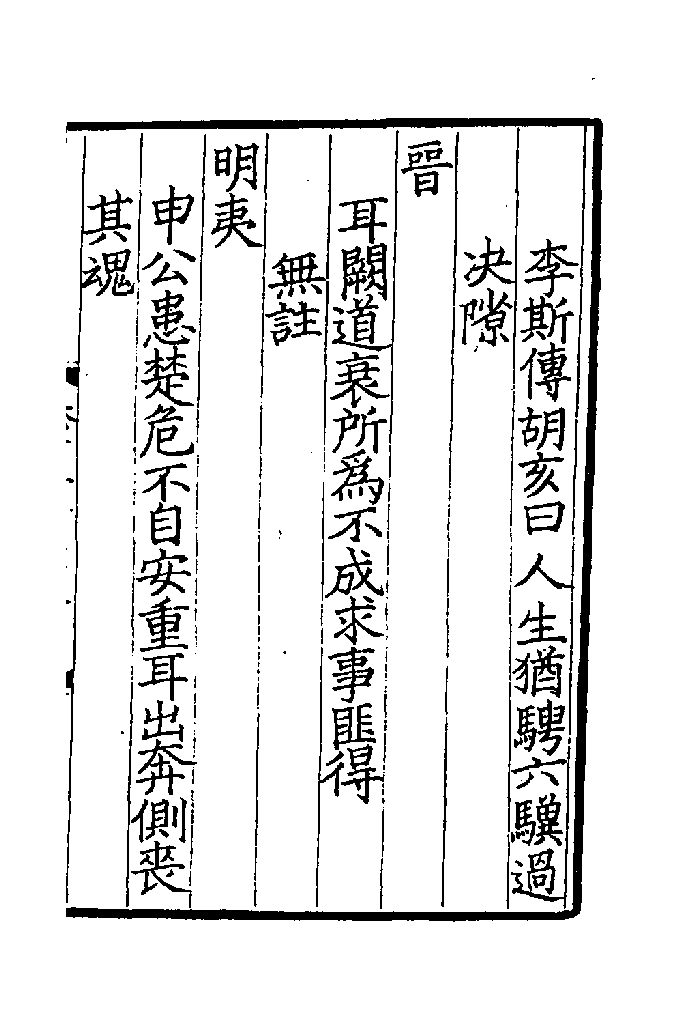 李斯傳胡亥曰人生猶騁六驥過
决隙
晋
耳闕道衰所爲不成求事匪得
無註
明夷
申公患楚危不自安重耳出奔側喪
其魂